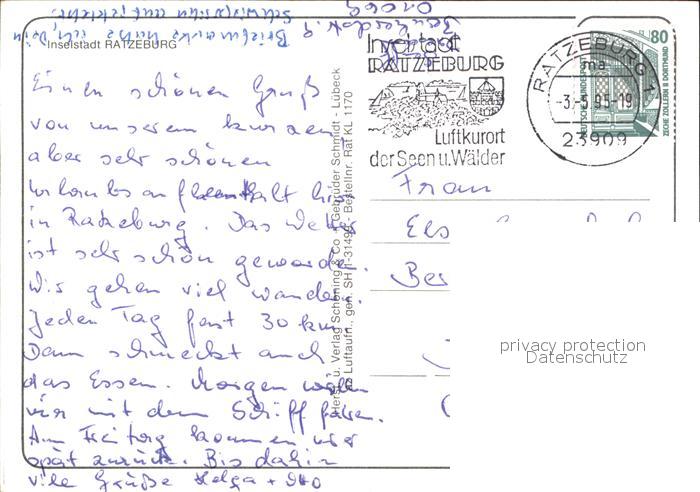 Briefmarke habe ich, Dein
Inselstadt RATZEBURG
Einen schönen Gruß
von unserem kurzen
aber sehr schönen
Urlaubsaufenthalt hier
in Ratzeburg. Das Wetter
ist sehr schön geworden.
Wir gehen viel wandern.
Jeden Tag fast 30 km.
Dann schmeckt auch
das Essen. Morgen wollen
wir mit dem Schiff fahren.
Am Freitag kommen wir
spät zurück. Bis dahin
viele Grüße Helga + Otto
Herst. u. Verlag Schöning & Co + Gebrüder Schmidt · Lübeck
Luftaufn., gen. SH 1-31499 · Bestellnr. Rat KL 1170
Inselstadt
RATZEBURG
Luftkurort
der Seen u. Wälder
RATZEBURG 1
ma
-3.-5.95-19
23909
80
DEUTSCHE BUNDESPOST
ZECHE ZOLLERN II DORTMUND
Frau
Els
Ber
privacy protection
Datenschutz